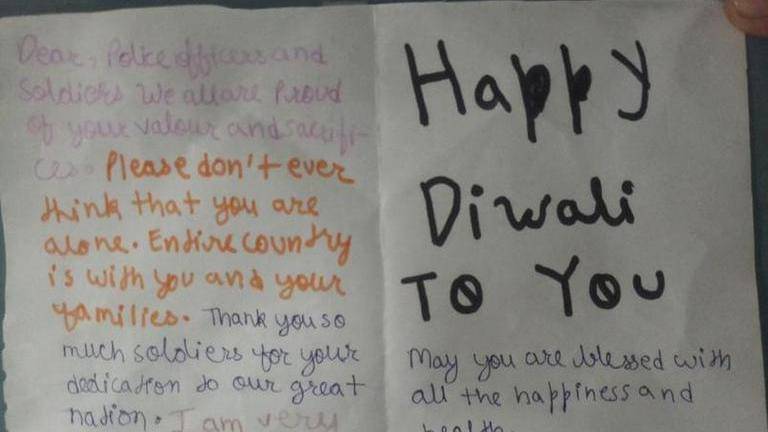 Dear, Police officers and
Soldiers We all are Proud
of your valour and sacrifi-
ces. Please don't ever
think that you are
alone. Entire country
is with you and your
families. Thank you so
much soldiers for your
dedication to our great
nation. I am very
Happy
Diwali
TO YOU
May you are blessed with
all the happiness and
health.